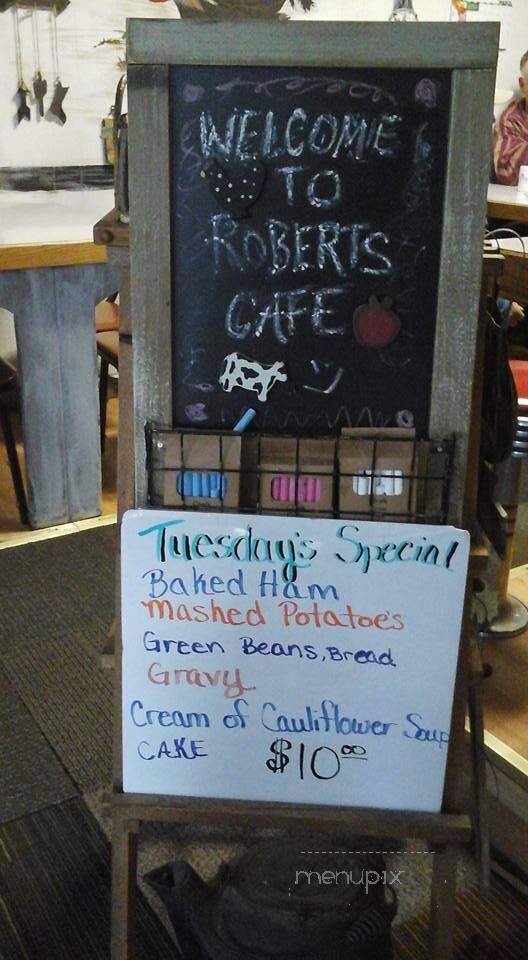 WELCOME
TO
ROBERTS
CAFE
Tuesday's Special
Baked Ham
Mashed Potatoe's
Green Beans, Bread
Gravy
Cream of Cauliflower Soup
CAKE $10⁰⁰
menupix